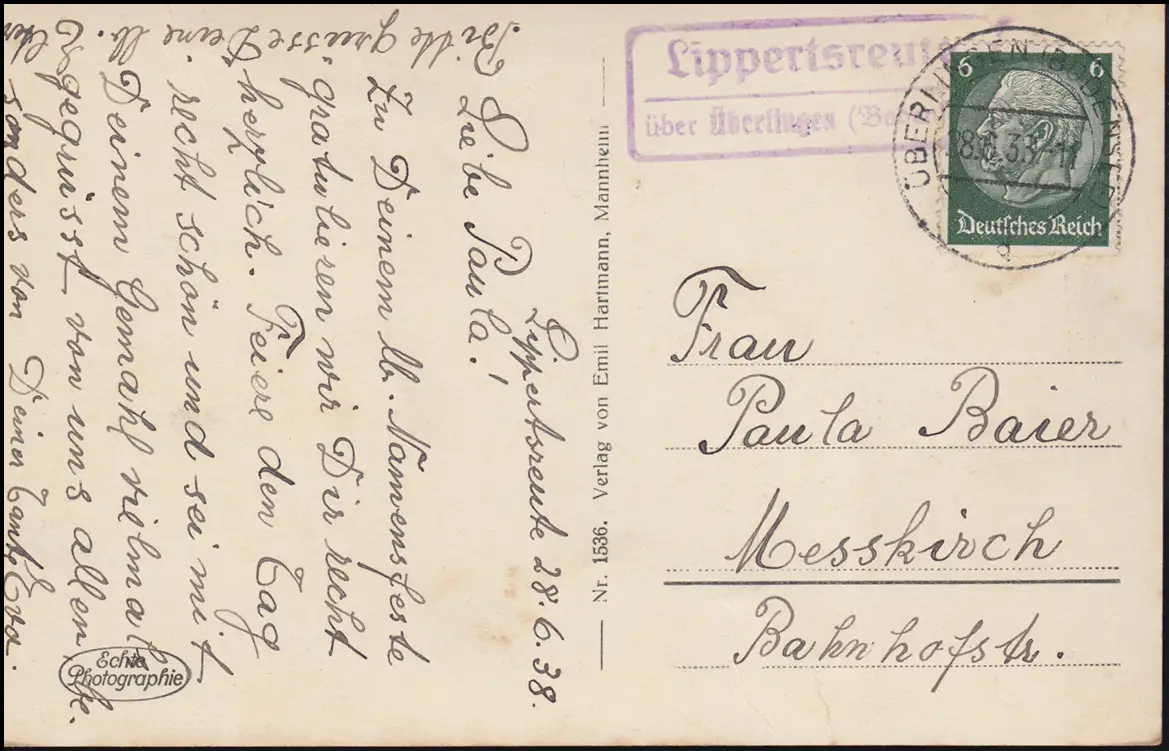 Lippertsreute 28.6.38.
Liebe Paula!
Zu Deinem lb. Namensfeste
gratulieren wir Dir recht
herzlich. Feiere den Tag
recht schön und sei mit
Deinem Gemahl vielmals
gegrüsst von uns allen, be-
sonders von Deiner Tante Eva.
Bitte grüsse Deine lb.
Echte
Photographie
Nr. 1536. Verlag von Emil Hartmann, Mannheim
Lippertsreute
über Überlingen (Boden
ÜBERLINGEN (BODENSEE)
28.6.38.-11
6 6
Deutsches Reich
Frau
Paula Baier
Messkirch
Bahnhofstr.